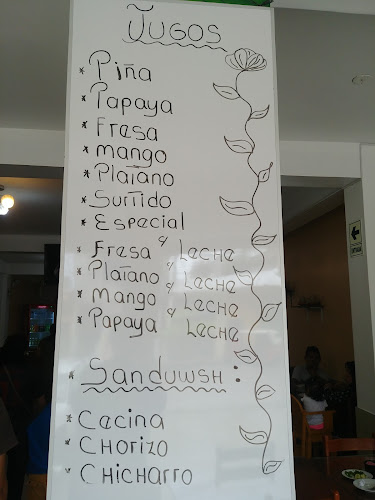 Jugos
* Piña
* Papaya
* Fresa
* mango
* Platano
* Surtido
* Especial
* Fresa y Leche
* Platano y Leche
* Mango y Leche
* Papaya y Leche
* Sanduwsh :
* Cecina
* Chorizo
* Chicharro